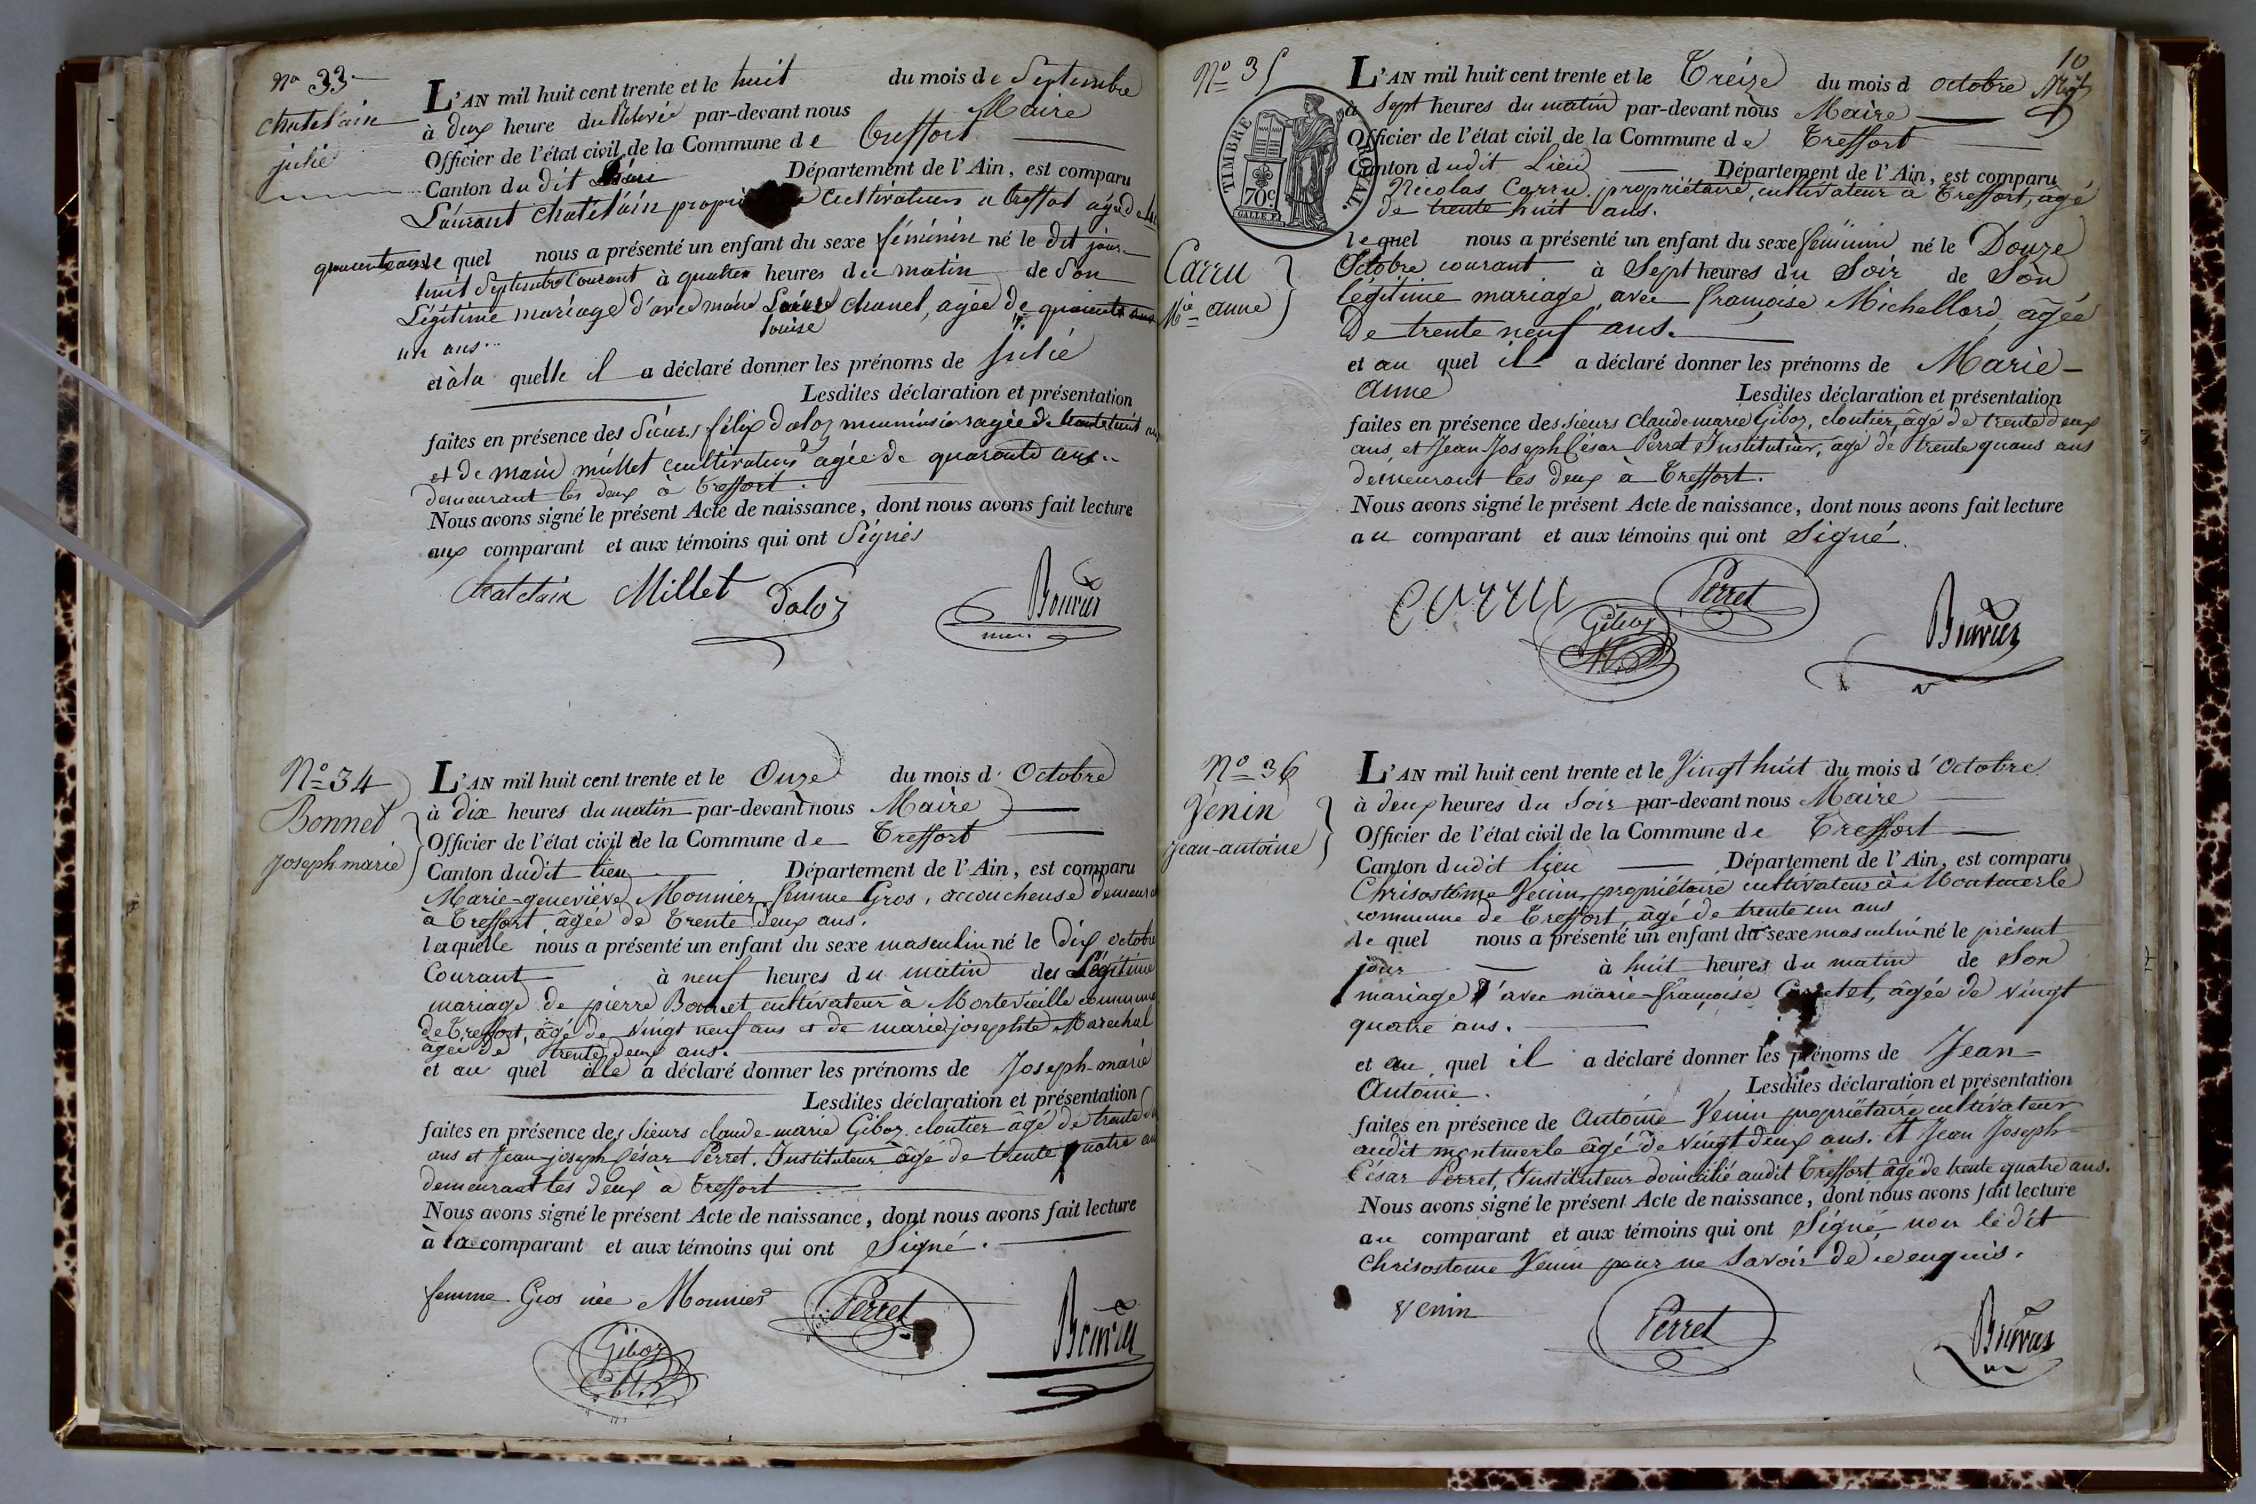 No 33
chatelain
julie
L'AN mil huit cent trente et le huit du mois de Septembre
à deux heure du Relevée par-devant nous Maire
Officier de l'état civil de la Commune de treffort
Canton du dit Département de l'Ain, est comparu
Laurant chatelain cultivateur a treffort agé de
quarente ans le quel nous a présenté un enfant du sexe féminin né le dit jour
huit Septembre Courant à quatre heures du matin de Son
Légitime mariage d'avec marie louise chanel, agée de quarente
un ans
et à la quelle il a déclaré donner les prénoms de Julie
Lesdites déclaration et présentation
faites en présence des Sieurs félix daloz agée de trente huit ans
et de millet cultivateur agée de quarante ans
demeurant les deux à treffort.
Nous avons signé le présent Acte de naissance, dont nous avons fait lecture
aux comparant et aux témoins qui ont Signés
Chatelain Millet Daloz Bouvier
No 34
Bonnet
Joseph marie
L'AN mil huit cent trente et le Onze du mois d'Octobre
à dix heures du matin par-devant nous Maire
Officier de l'état civil de la Commune de Treffort
Canton dudit lieu Département de l'Ain, est comparu
Marie-geneviève Monnier, femme Gros, accoucheuse demeurant
à Treffort, âgée de Trente deux ans.
laquelle nous a présenté un enfant du sexe masculin né le dix octobre
Courant à neuf heures du matin du Légitime
mariage de pierre Bonnet cultivateur à Mortevieille commune
de Treffort, âgé de vingt neuf ans et de marie-josephte Marechal
âgée de trente deux ans.
et au quel elle a déclaré donner les prénoms de Joseph-marie
Lesdites déclaration et présentation
faites en présence des Sieurs claude-marie Giboz, cloutier âgé de trente deux
ans et Jean-joseph César Perret, Instituteur âgé de trente quatre ans
demeurant les deux à Treffort
Nous avons signé le présent Acte de naissance, dont nous avons fait lecture
à la comparant et aux témoins qui ont Signé.
femme Gros née Monnier Perret Bouvier
Giboz
10
No 35
TIMBRE ROYAL.
70c
Carru
Mie anne
L'AN mil huit cent trente et le Treize du mois d octobre
à Sept heures du matin par-devant nous Maire
Officier de l'état civil de la Commune de Treffort
Canton dudit Lieu Département de l'Ain, est comparu
Nicolas Carru, propriétaire, cultivateur à Treffort, âgé
de trente huit ans.
lequel nous a présenté un enfant du sexe féminin né le Douze
Octobre courant à Sept heures du Soir de Son
légitime mariage avec françoise Michellard, âgée
De trente neuf ans.
et au quel il a déclaré donner les prénoms de Marie-
Anne
Lesdites déclaration et présentation
faites en présence des sieurs Claude marie Giboz, cloutier, âgé de trente deux
ans, et Jean Joseph César Perret Instituteur, âgé de trente quatre ans
demeurant les deux à Treffort.
Nous avons signé le présent Acte de naissance, dont nous avons fait lecture
au comparant et aux témoins qui ont Signé.
carru Perret
Giboz Bouvier
No 36
Venin
Jean-antoine
L'AN mil huit cent trente et le Vingt huit du mois d'Octobre
à deux heures du Soir par-devant nous Maire
Officier de l'état civil de la Commune de Treffort
Canton dudit lieu Département de l'Ain, est comparu
Chrisostôme Venin, propriétaire cultivateur à Montmerle
commune de Treffort, âgé de trente un ans
le quel nous a présenté un enfant du sexe masculin né le présent
jour à huit heures du matin de Son
mariage d'avec marie-françoise âgée de vingt
quatre ans.
et au quel il a déclaré donner les prénoms de Jean-
Antoine.
Lesdites déclaration et présentation
faites en présence de Antoine Venin propriétaire cultivateur
audit montmerle âgé de vingt deux ans. et Jean Joseph
César Perret, Instituteur domicilié audit Treffort âgé de trente quatre ans.
Nous avons signé le présent Acte de naissance, dont nous avons fait lecture
au comparant et aux témoins qui ont Signé, non ledit
Chrisostome Venin pour ne Savoir de ce enquis.
Venin Perret Bouvier